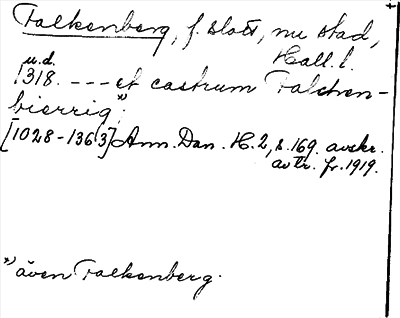 Falkenberg, f. slott, nu stad,
Hall. l.
u.d.
1318. --- et castrum Falchen-
bierrig*);
[1028-1363] Ann. Dan. H. 2, s. 169. avskr.
avtr. fr. 1919.
*) även Falkenberg.